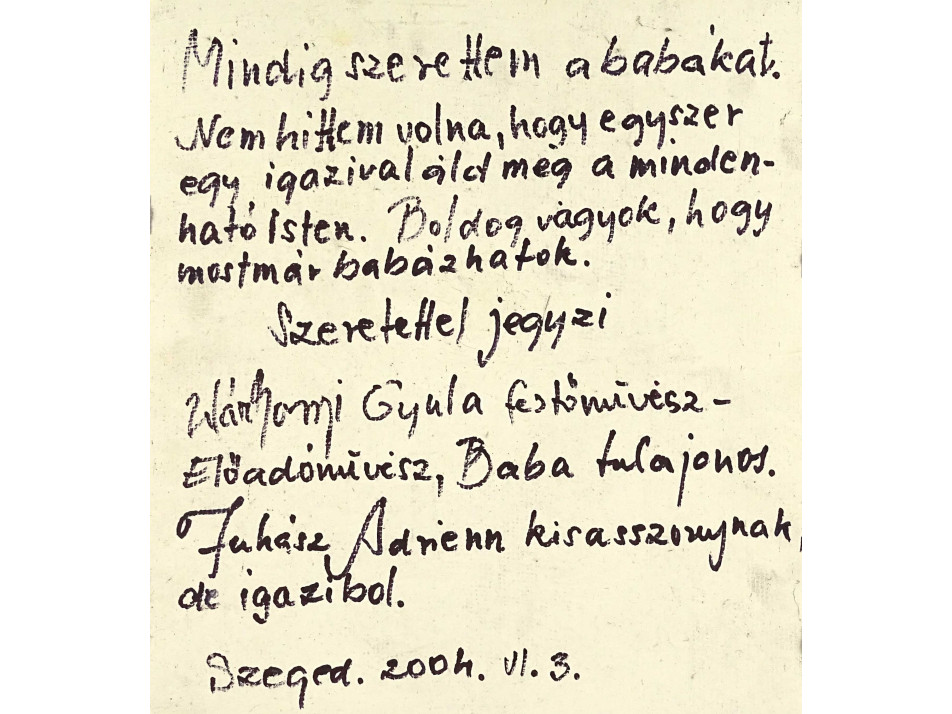 Mindig szerettem a babákat.
Nem hittem volna, hogy egyszer
egy igazival áld meg a minden-
ható Isten. Boldog vagyok, hogy
mostmár babázhatok.
Szeretettel jegyzi
Várhomji Gyula festőművész-
Előadóművész, Baba tulajonos.
Juhász Adrienn kisasszonynak,
de igaziból.
Szeged. 2004. VI. 3.